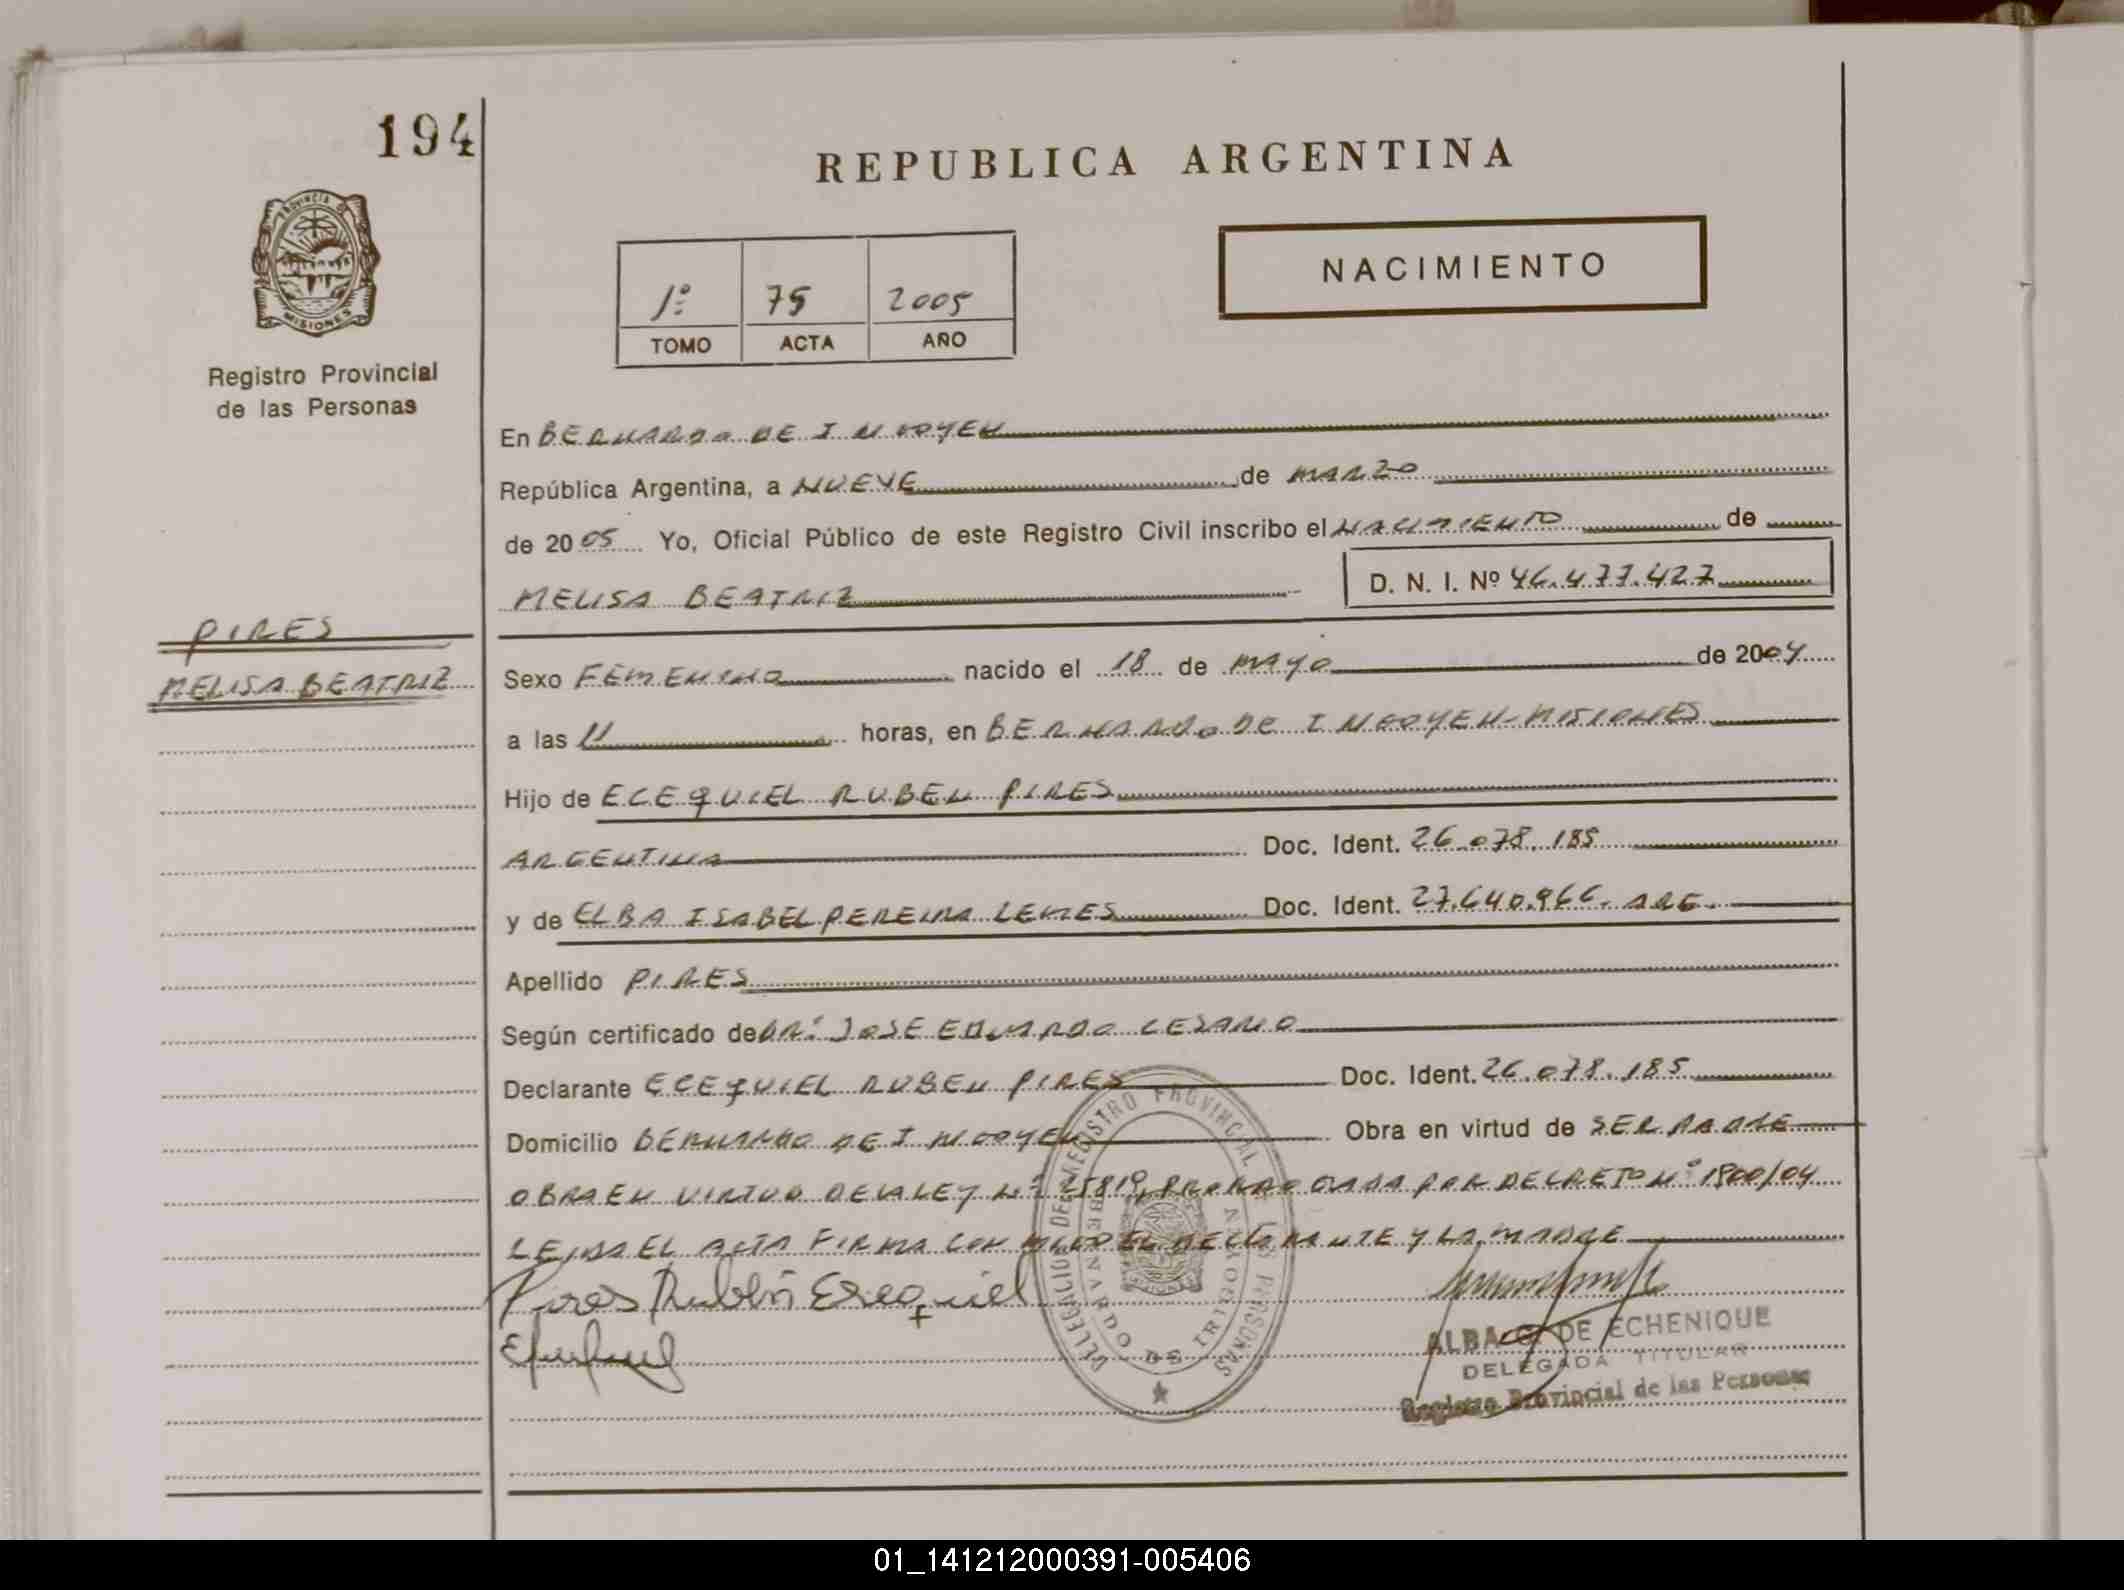 194
REPUBLICA ARGENTINA
PROVINCIA DE
MISIONES
Registro Provincial
de las Personas
1º 75 2005
TOMO ACTA AÑO
NACIMIENTO
En BERNARDO DE IRIGOYEN
República Argentina, a NUEVE de MARZO
de 2005 Yo, Oficial Público de este Registro Civil inscribo el NACIMIENTO de
MELISA BEATRIZ D. N. I. Nº 46.477.427
PIRES
MELISA BEATRIZ
Sexo FEMENINO nacido el 18 de MAYO de 2004
a las 11 horas, en BERNARDO DE IRIGOYEN-MISIONES
Hijo de ECEQUIEL RUBEN PIRES
ARGENTINA Doc. Ident. 26.078.185
y de ELBA ISABEL PEREIRA LEMES Doc. Ident. 27.640.966. ARG.
Apellido PIRES
Según certificado de DR: JOSE EDUARDO CESARIO
Declarante ECEQUIEL RUBEN PIRES Doc. Ident. 26.078.185
Domicilio BERNARDO DE IRIGOYEN Obra en virtud de SER PADRE
OBRA EN VIRTUD DE LA LEY Nº 25819, PRORROGADA POR DECRETO Nº 1900/04
LEIDA EL ACTA FIRMA CON MIGO EL DECLARANTE Y LA MADRE
Pires Rubén Ezequiel
DELEGACION DEL REGISTRO PROVINCIAL DE LAS PERSONAS
BERNARDO DE IRIGOYEN
MISIONES
ALBA G. DE ECHENIQUE
DELEGADA TITULAR
Registro Provincial de las Personas
01_141212000391-005406